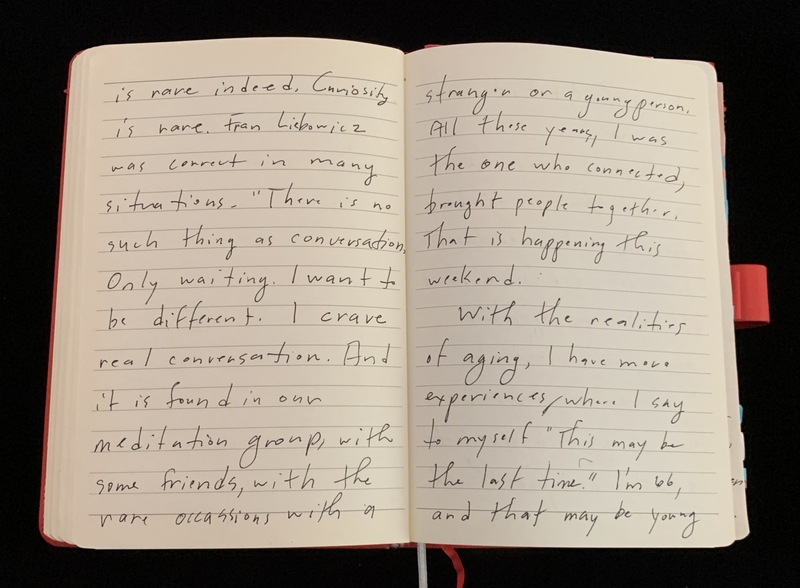 is rare indeed. Curiosity
is rare. Fran Liebowicz
was correct in many
situations. "There is no
such thing as conversation.
Only waiting. I want to
be different. I crave
real conversation. And
it is found in our
meditation group, with
some friends, with the
rare occassions with a
stranger or a young person.
All these years, I was
the one who connected,
brought people together.
That is happening this
weekend.
With the realities
of aging, I have more
experiences, where I say
to myself "This may be
the last time." I'm 66,
and that may be young